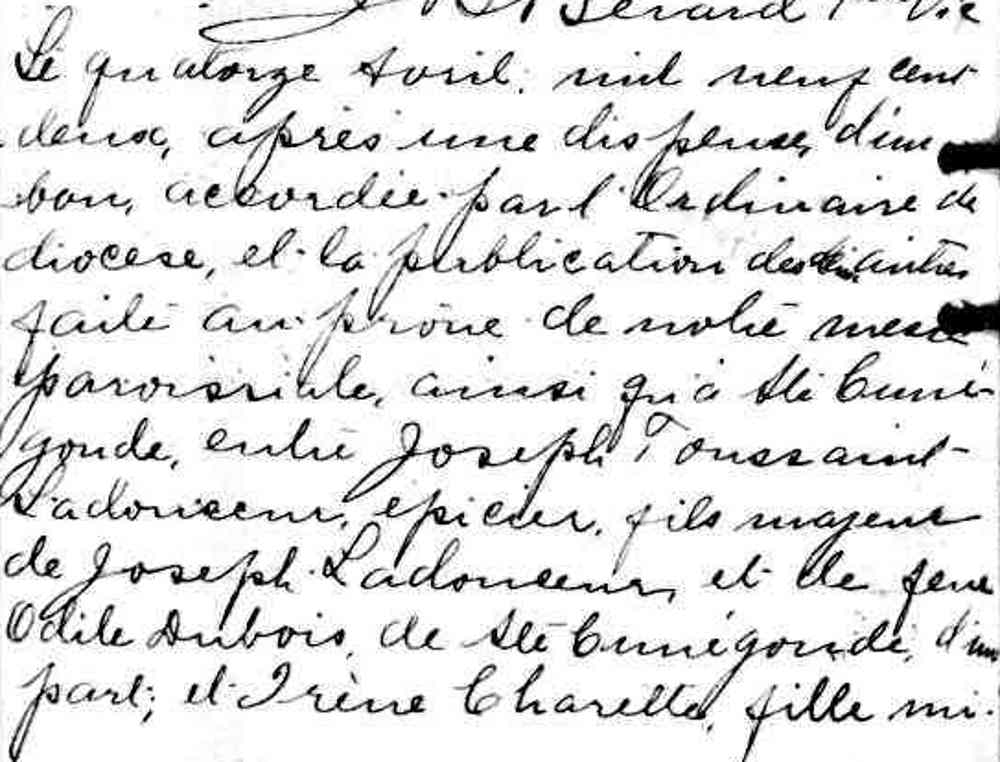 Bérard
Le quatorze Avril mil neuf cent
deux, après une dispense d'un
ban, accordée par l'Ordinaire de
diocese, et la publication des autres
faite au prône de notre messe
paroissiale, ainsi qu'à Ste Cuné-
gonde, entre Joseph Toussaint
Ladouceur, epicier, fils majeur
de Joseph Ladouceur, et de feue
Odile Dubois, de Ste Cunégonde, d'une
part; et Irène Charette, fille mi-